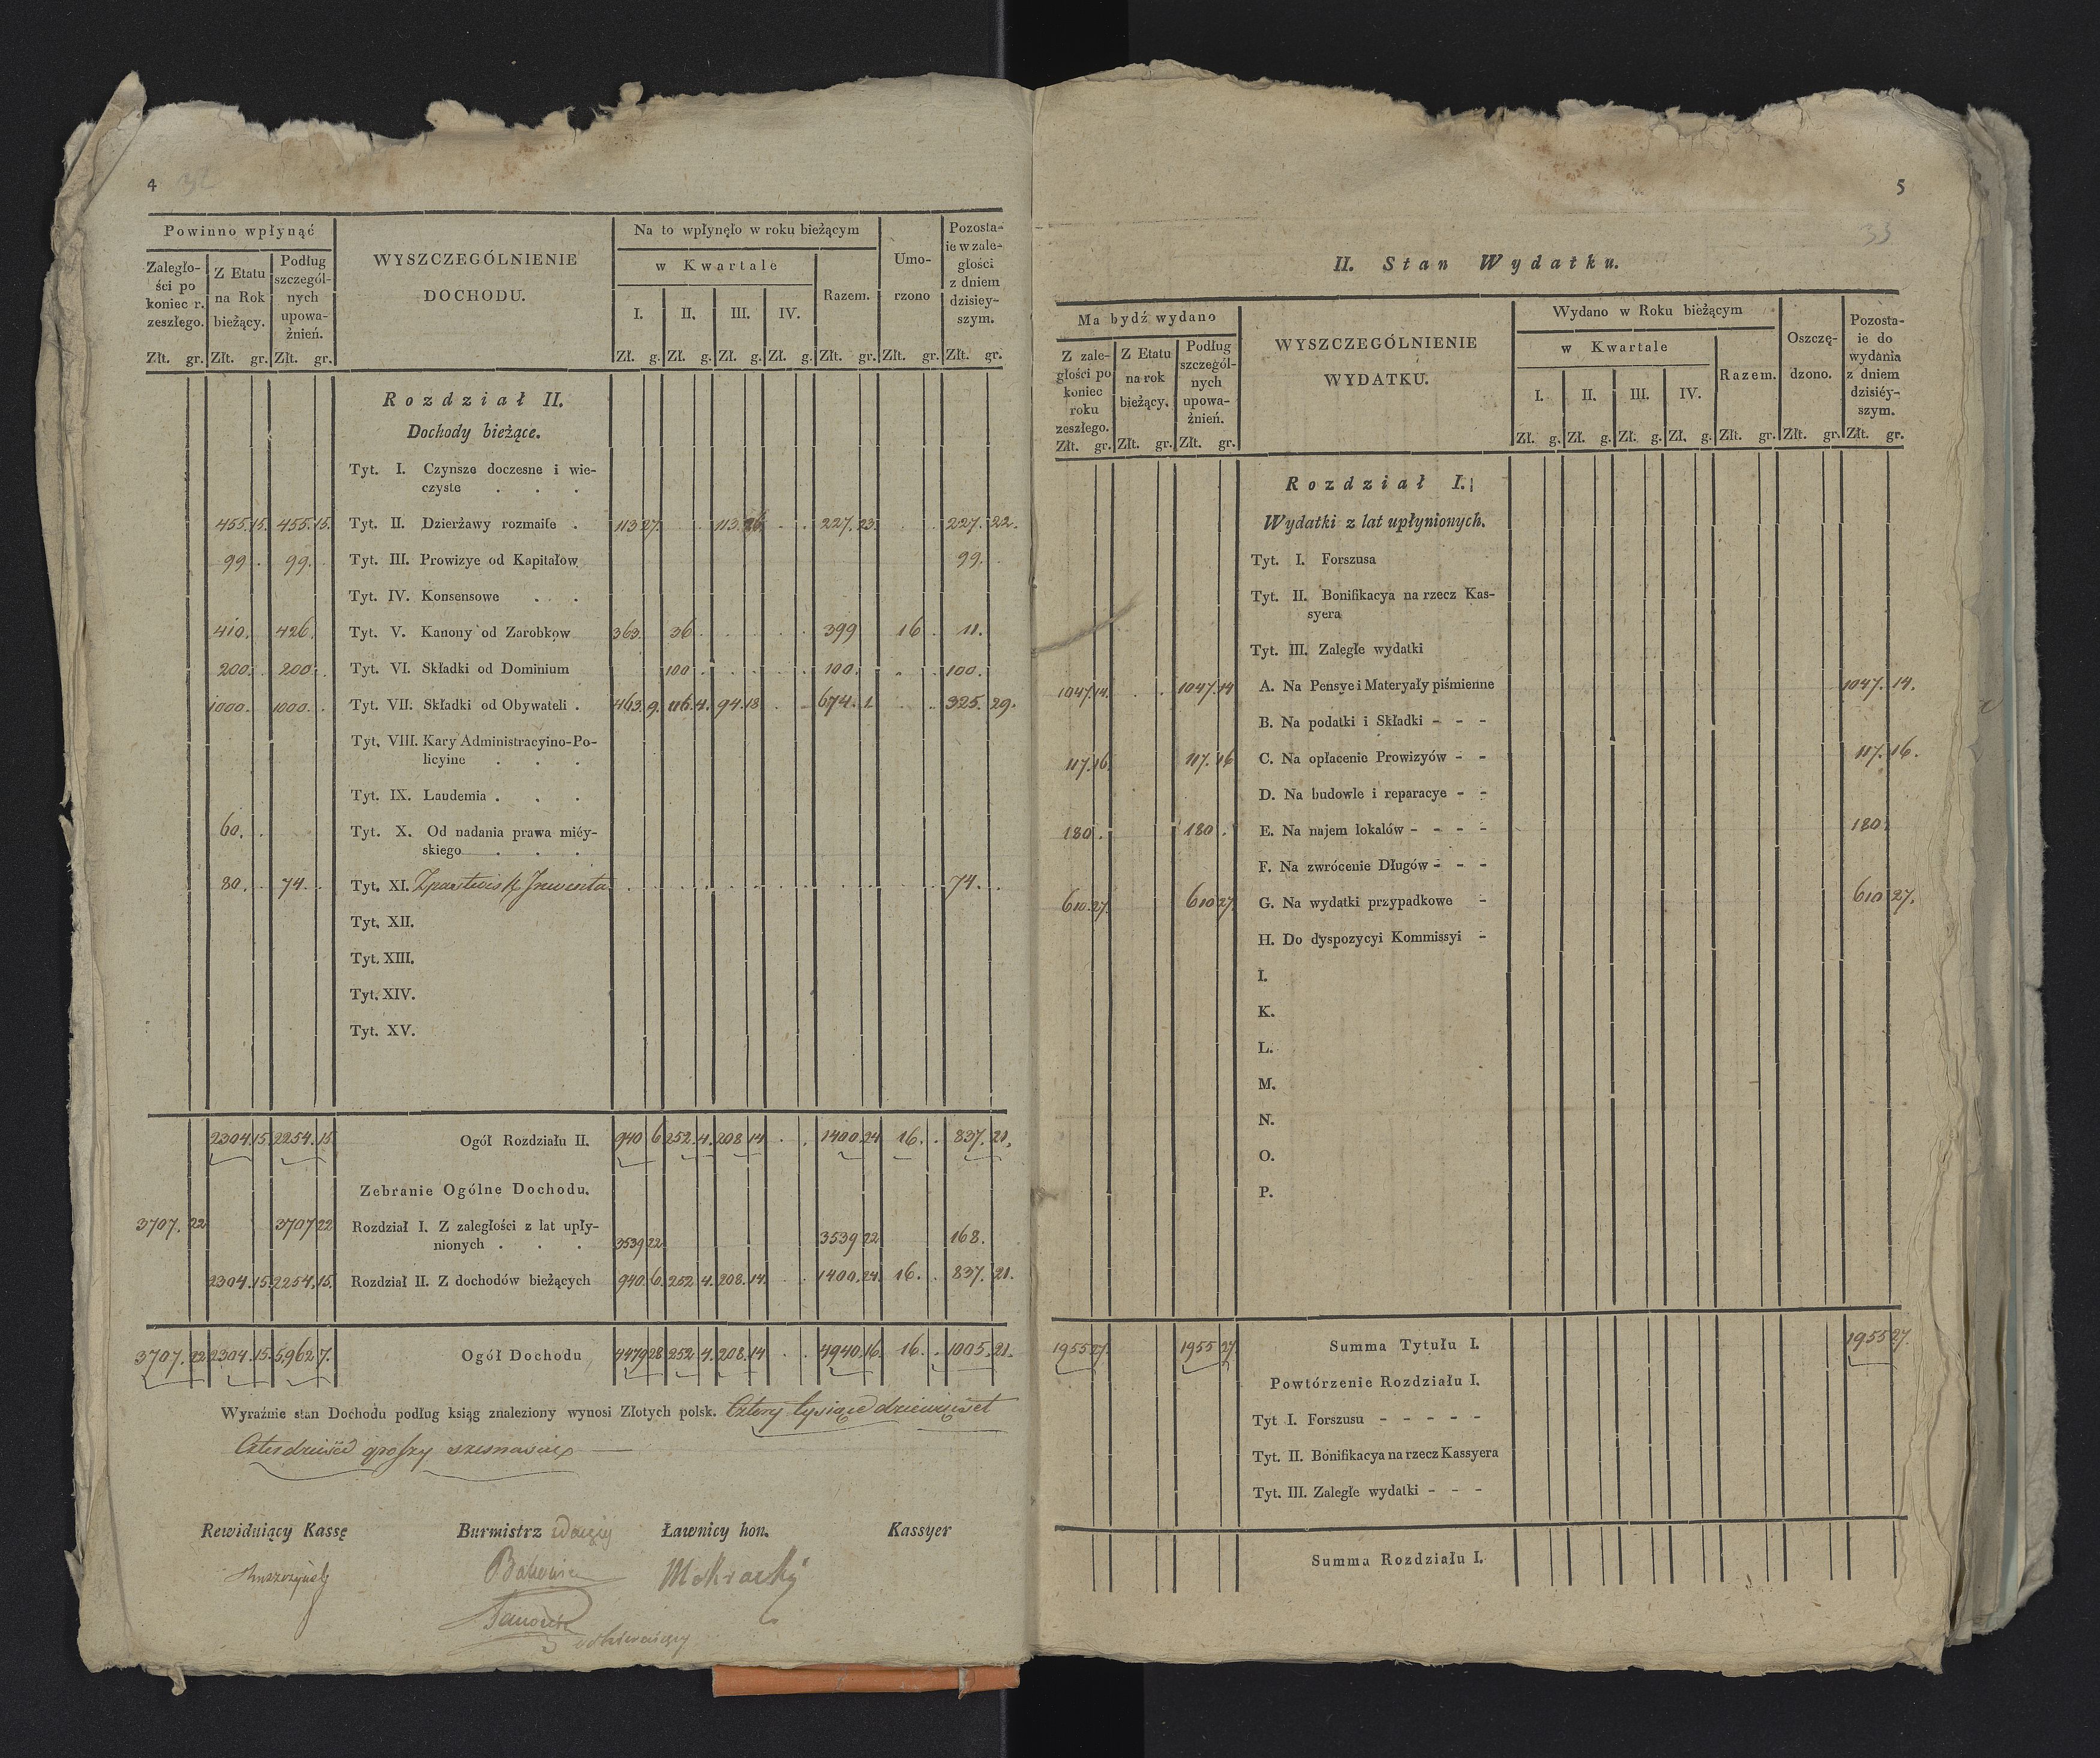 4 32
Powinno wpłynąć
Zaległości po koniec r. zeszłego. Złt. gr.
Z Etatu na Rok bieżący. Złt. gr.
Podług szczególnych upoważnień. Złt. gr.
WYSZCZEGÓLNIENIE
DOCHODU.
Na to wpłynęło w roku bieżącym
w Kwartale
I. II. III. IV. Razem.
Zł. g. Zł. g. Zł. g. Zł. g. Złt. gr.
Umorzono Złt. gr.
Pozostaie w zaległości z dniem dzisieyszym. Złt. gr.
Rozdział II.
Dochody bieżące.
Tyt. I. Czynsze doczesne i wie-
czyste . . .
455. 15. 455. 15. Tyt. II. Dzierżawy rozmaite . 113 27. . . 113. 26 . . 227. 23. . . 227. 22.
99 . 99. Tyt. III. Prowizye od Kapitałow 99.
Tyt. IV. Konsensowe . .
410. 426. Tyt. V. Kanony od Zarobkow 363. 36 . . . . . 399 16 . 11.
200. 200. Tyt. VI. Składki od Dominium 100 . . . . . 100. . . 100.
1000. 1000. Tyt. VII. Składki od Obywateli . 463. 9. 116. 4. 94. 18 . . 674. 1. . . 325. 29.
Tyt. VIII. Kary Administracyino-Po-
licyine . . .
Tyt. IX. Laudemia . . .
60. . Tyt. X. Od nadania prawa miéy-
skiego . . .
80. . 74. . Tyt. XI. . . . . . . . . 74. .
Tyt. XII.
Tyt. XIII.
Tyt. XIV.
Tyt. XV.
2304. 15. 2254. 15. Ogół Rozdziału II. 940 6 252. 4. 208. 14 . . 1400. 24 16. . 837. 21.
Zebranie Ogólne Dochodu.
3707. 22 3707 22 Rozdział I. Z zaległości z lat upły-
nionych . . . 3539 22 3539 22 168.
2304. 15. 2254. 15. Rozdział II. Z dochodów bieżących 940. 6. 252 4. 208. 14. . . 1400. 24. 16. . 837. 21.
3707. 22 2304. 15. 5962 7. Ogół Dochodu 4479 28 252. 4. 208. 14 . . 4940. 16. 16. . 1005. 21.
Wyraźnie stan Dochodu podług ksiąg znaleziony wynosi Złotych polsk. Cztery tysiące dziewięćset
Czterdzieści groszy szesnaście
Rewiduiący Kassę Burmistrz Ławnicy hon. Kassyer
Mokracki
5
33
II. Stan Wydatku.
Ma bydź wydano
Z zaległości po koniec roku zeszłego. Złt. gr.
Z Etatu na rok bieżący. Złt. gr.
Podług szczególnych upoważnień. Złt. gr.
WYSZCZEGÓLNIENIE
WYDATKU.
Wydano w Roku bieżącym
w Kwartale
I. II. III. IV. Razem.
Zł. g. Zł. g. Zł. g. Zł. g. Złt. gr.
Oszczędzono. Złt. gr.
Pozostaie do wydania z dniem dzisiéyszym. Złt. gr.
Rozdział I.
Wydatki z lat upłynionych.
Tyt. I. Forszusa
Tyt. II. Bonifikacya na rzecz Kas-
syera
Tyt. III. Zaległe wydatki
1047. 14. . . 1047. 14 A. Na Pensye i Materyały piśmienne 1047. 14.
B. Na podatki i Składki - - -
117. 16. 117. 16 C. Na opłacenie Prowizyów - - 117. 16.
D. Na budowle i reparacye - -
180 . 180 . E. Na najem lokalów - - - - 180.
F. Na zwrócenie Długów - - -
610. 27. 610 27. G. Na wydatki przypadkowe - 610 27.
H. Do dyspozycyi Kommissyi -
I.
K.
L.
M.
N.
O.
P.
1955 27. 1955 27 Summa Tytułu I. 1955 27.
Powtórzenie Rozdziału I.
Tyt I. Forszusu - - - - -
Tyt. II. Bonifikacya na rzecz Kassyera
Tyt. III. Zaległe wydatki - - -
Summa Rozdziału I.